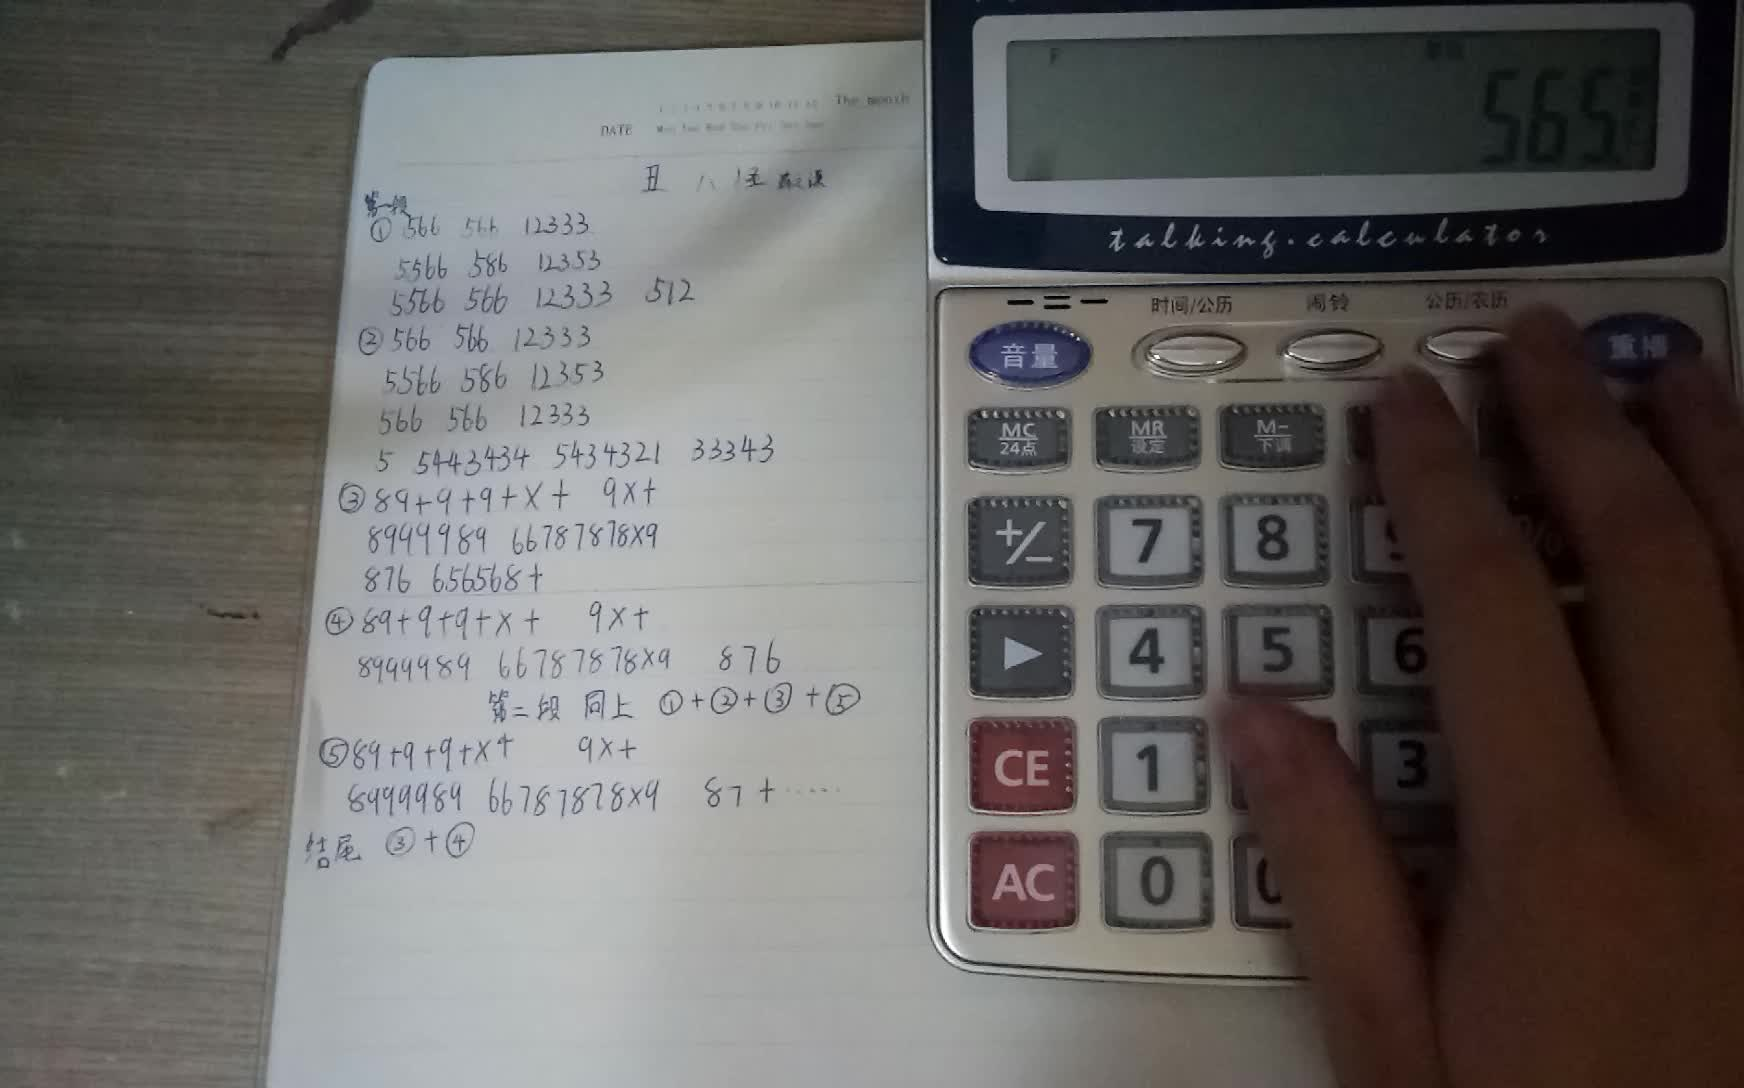 The month
DATE
丑 八 怪 薛之谦
第一段
① 566 566 12333
5566 586 12353
5566 566 12333 512
② 566 566 12333
5566 586 12353
566 566 12333
5 5443434 5434321 33343
③ 89+9+9+X+ 9X+
8999989 66787878X9
876 656568+
④ 89+9+9+X+ 9X+
8999989 66787878X9 876
第二段 同上 ①+②+③+⑤
⑤ 89+9+9+X+ 9X+
8999989 66787878X9 87+······
结尾 ③+④
F
565
talking.calculator
时间/公历 闹铃 公历/农历
音量 重播
MC 24点 MR 设定 M- 下调
+/− 7 8
▶ 4 5 6
CE 1 3
AC 0